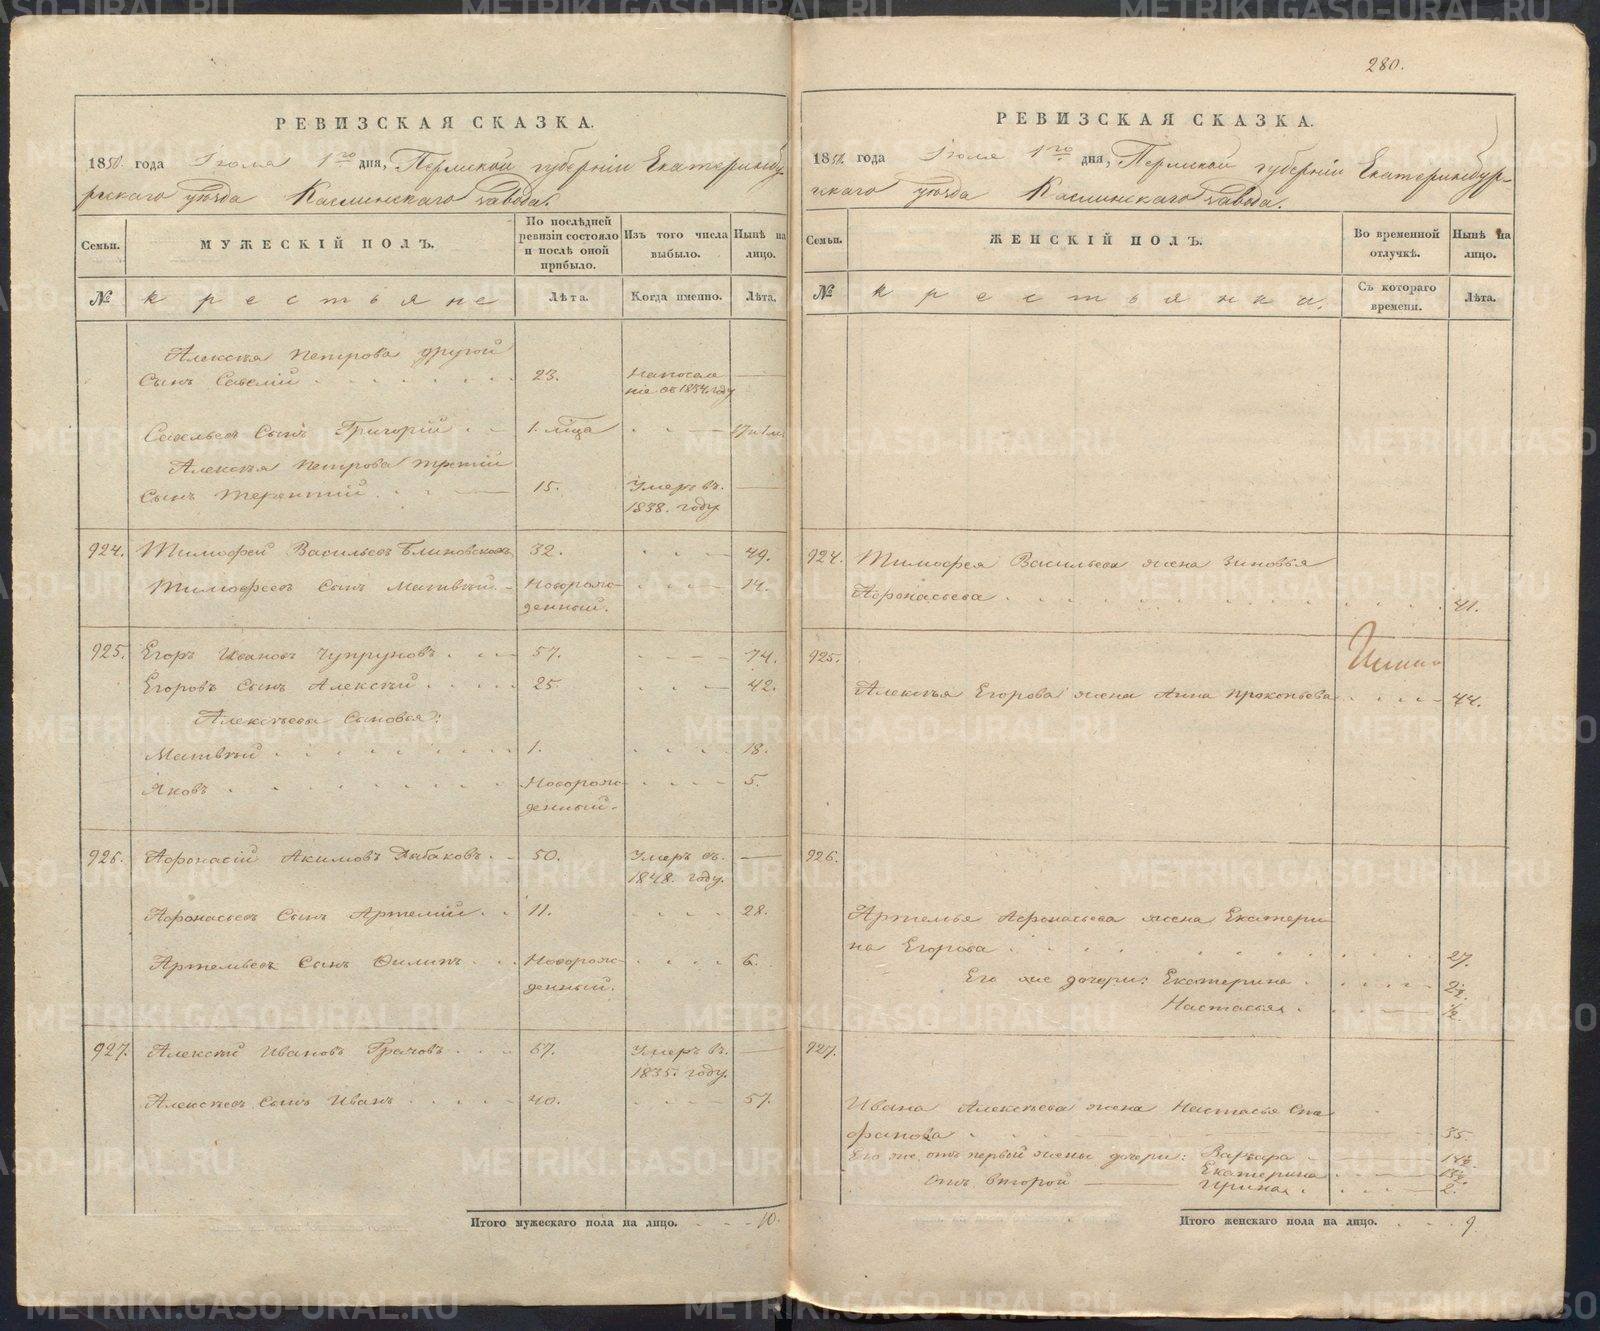 280.
РЕВИЗСКАЯ СКАЗКА.
1850. года Июля 1го дня, Пермской губерніи Екатеринбу-
ргскаго уѣзда Каслинскаго завода.
Семьи.
МУЖЕСКІЙ ПОЛЪ.
По послѣдней ревизіи состояло и послѣ оной прибыло.
Изъ того числа выбыло.
Нынѣ на лицо.
№
крестьяне
Лѣта.
Когда именно.
Лѣта.
Алексѣя Петрова другой
сынъ Савелій 23. На поселе
ніе въ 1834. году —
Савельевъ сынъ Григорій 1. мца 17 и 1 м.
Алексѣя Петрова третій
сынъ Терентій 15. Умеръ въ —
1838. году
924. Тимофей Васильевъ 32. 49.
Тимофеевъ сынъ Матвѣй Новорож- 14.
денный.
925. Егоръ Ивановъ Чупруновъ 57. 74.
Егоровъ сынъ Алексѣй 25. 42.
Алексѣевы сыновья:
Матвѣй 1. 18.
Яковъ Новорож- 5.
денный.
926. Афонасій Акимовъ Рыбаковъ 50. Умеръ въ —
1848. году.
Афонасьевъ сынъ Артемій 11. 28.
Артемьевъ сынъ Филипъ Новорож- 6.
денный.
927. Алексѣй Ивановъ Грачовъ 67. Умеръ въ —
1835. году.
Алексѣевъ сынъ Иванъ 40. 57.
Итого мужескаго пола на лицо. 10.
РЕВИЗСКАЯ СКАЗКА.
1850. года Июля 1го дня, Пермской губерніи Екатеринбур-
гскаго уѣзда Каслинскаго завода.
Семьи.
ЖЕНСКІЙ ПОЛЪ.
Во временной отлучкѣ.
Нынѣ на лицо.
№
крестьянки.
Съ котораго времени.
Лѣта.
924. Тимофея Васильева жена Зиновья
Афонасьева 41.
925.
Алексѣя Егорова жена Анна Прокопьева 44.
926.
Артемья Афонасьева жена Екатери
на Егорова 27.
Его же дочери: Екатерина 2½.
Настасья ½.
927.
Ивана Алексѣева жена Настасья Сте
фанова 35.
Его же отъ первой жены дочери: Варвара
Екатерина
отъ второй — Ирина 2.
Итого женскаго пола на лицо. 9.
METRIKI.GASO-URAL.RU